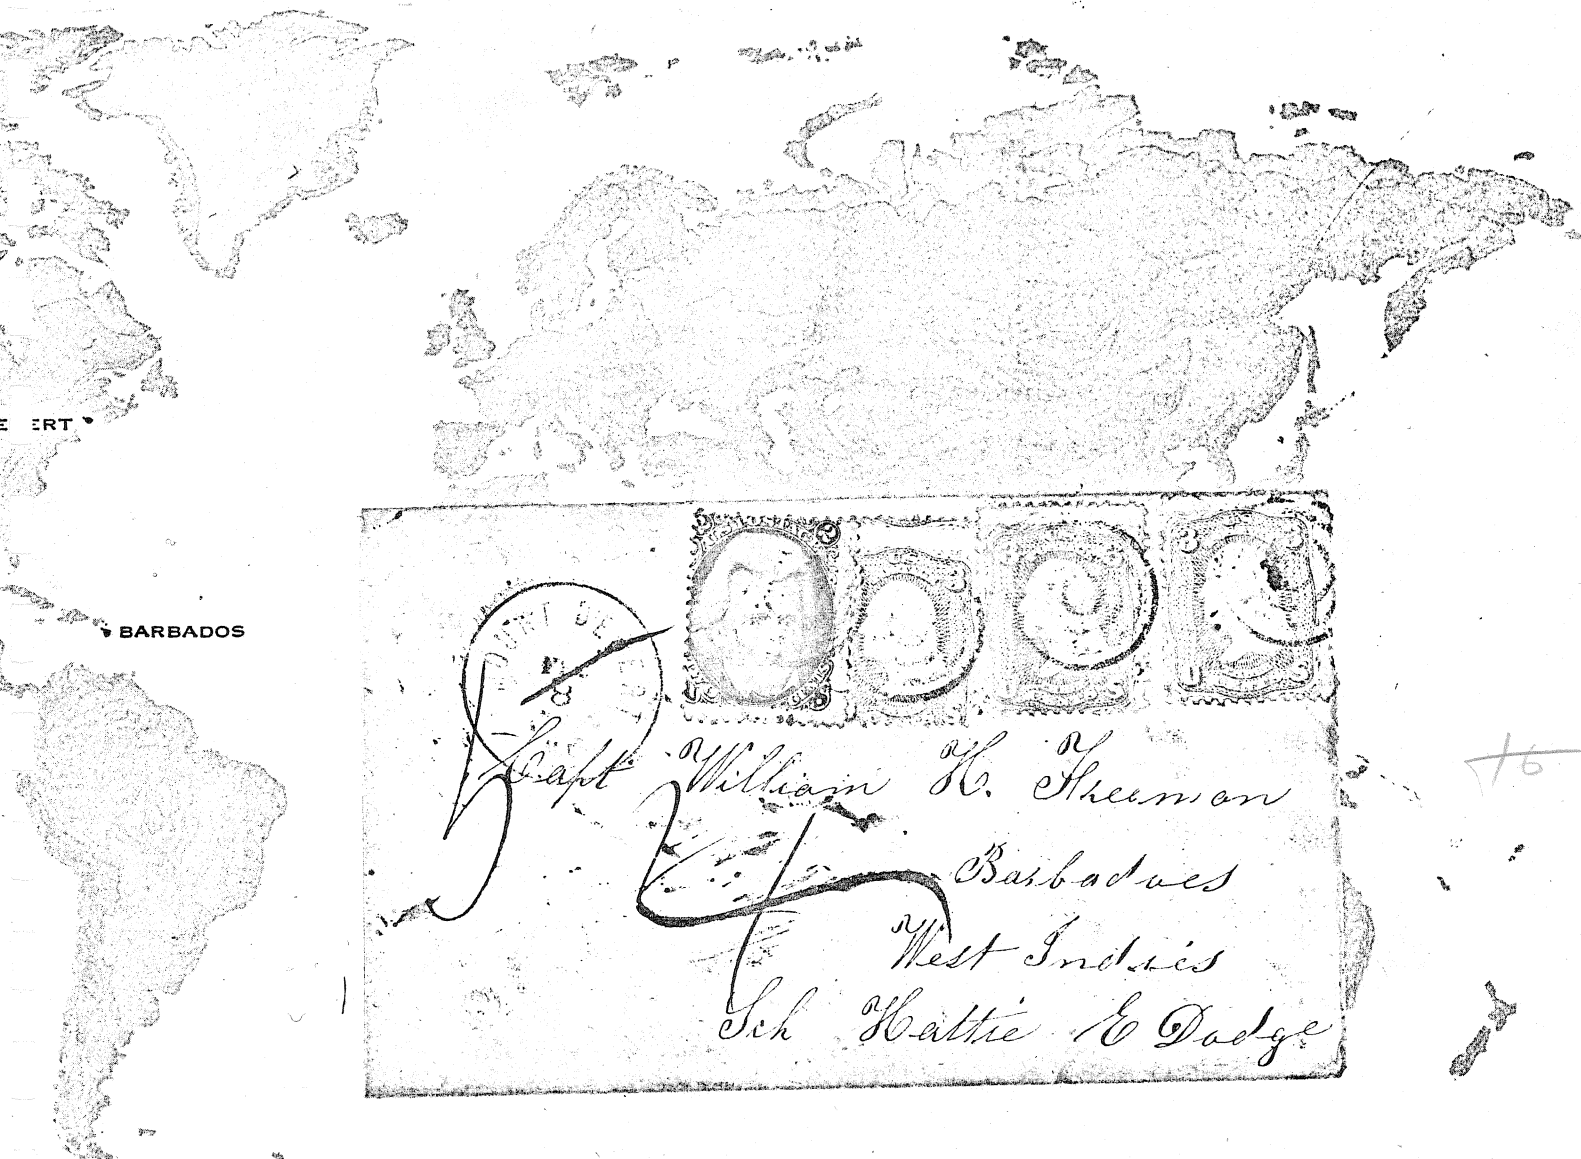 ERT
BARBADOS
DE
8
3
Capt William H. Freeman
Barbadoes
West Indies
Sch Hattie E Dodge